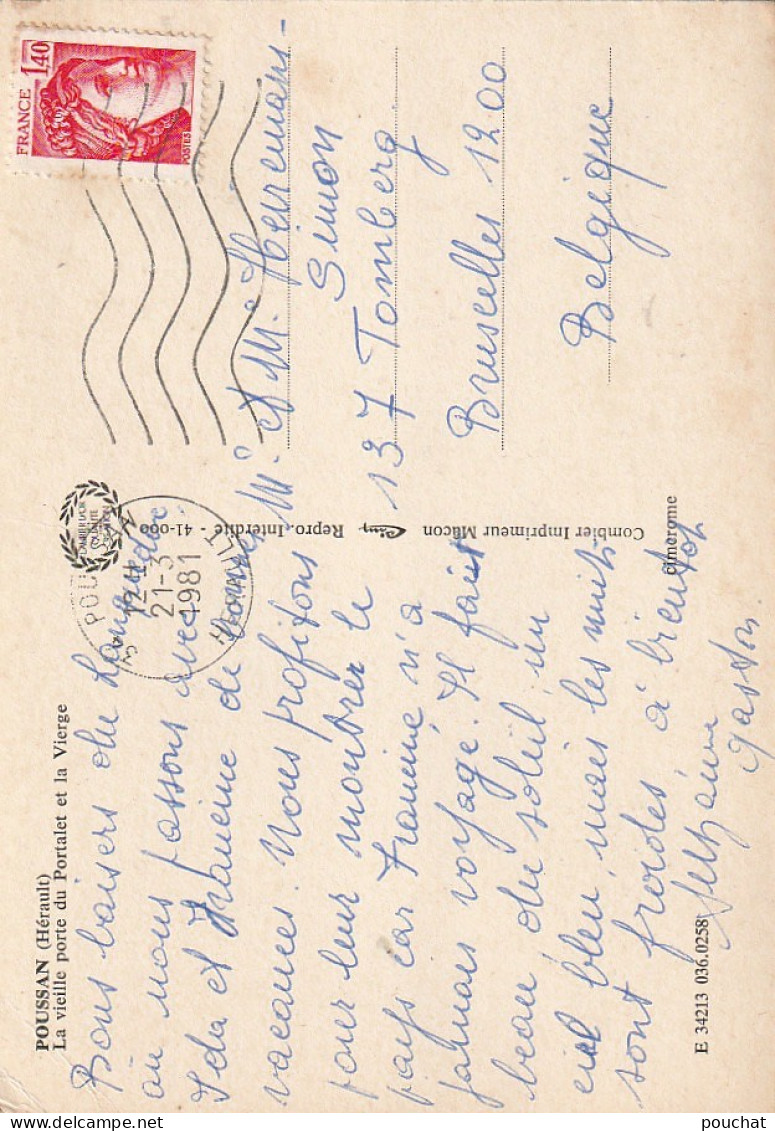 POUSSAN (Hérault)
La vieille porte du Portalet et la Vierge
Bons baisers du Languedoc
où nous passons avec
Ida et Francine de bonnes
vacances. Nous profitons
pour leur montrer le
pays car Francine n'a
jamais voyagé. Il fait
beau du soleil, un
ciel bleu, mais les nuits
sont froides, à bientôt
Gaston
E 34213 036.0258
FRANCE
1,40
POSTES
34 POUSSAN
12 H
21-3
1981
HERAULT
Combier Imprimeur Mâcon
Repro. Interdite - 41-000
cimcrome
Mr et M. Heiremans-
Simon
137 Tomberg
Bruxelles 1200
Belgique
pouchat